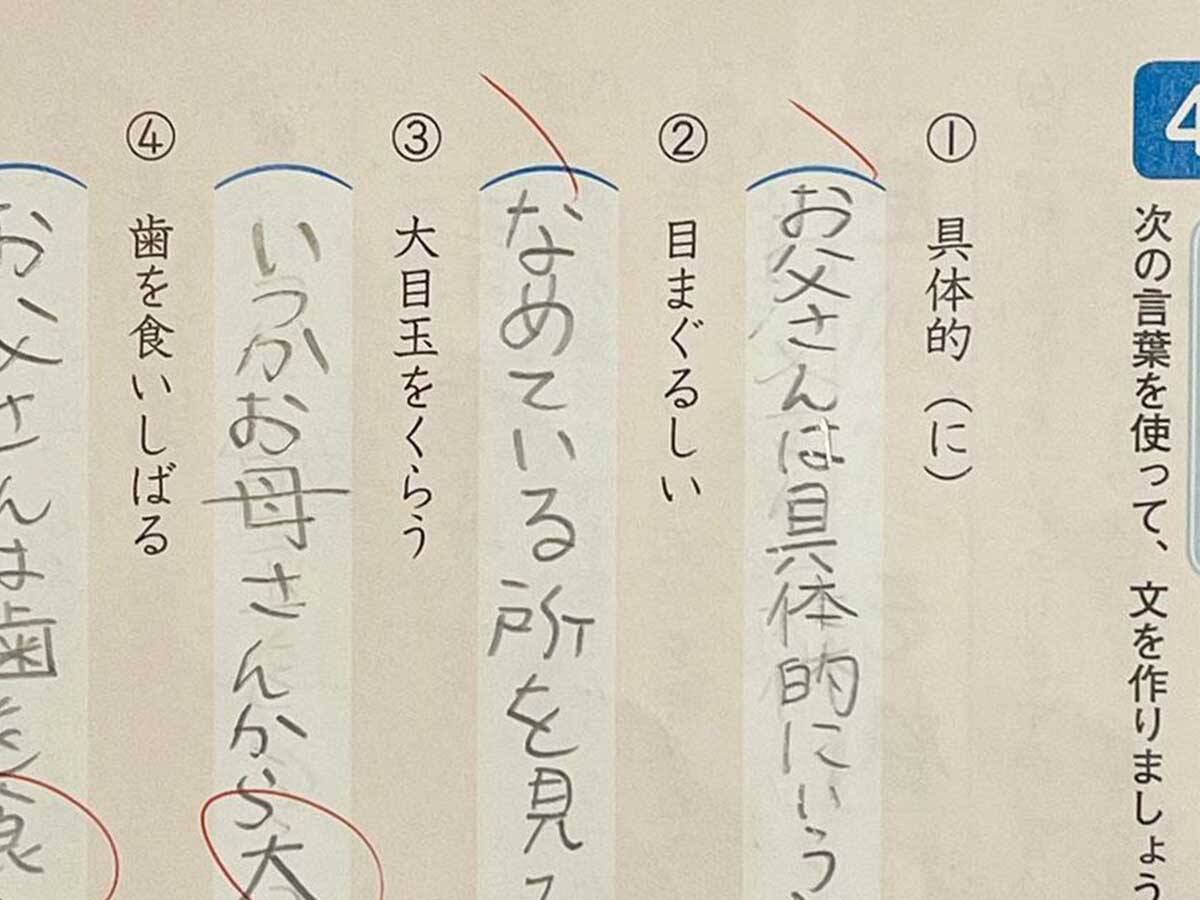 4
次の言葉を使って、文を作りましょう
① 具体的（に）
お父さんは具体的にいう
② 目まぐるしい
なめている所を見て
③ 大目玉をくらう
いつかお母さんから大
④ 歯を食いしばる
お父さんは歯を食